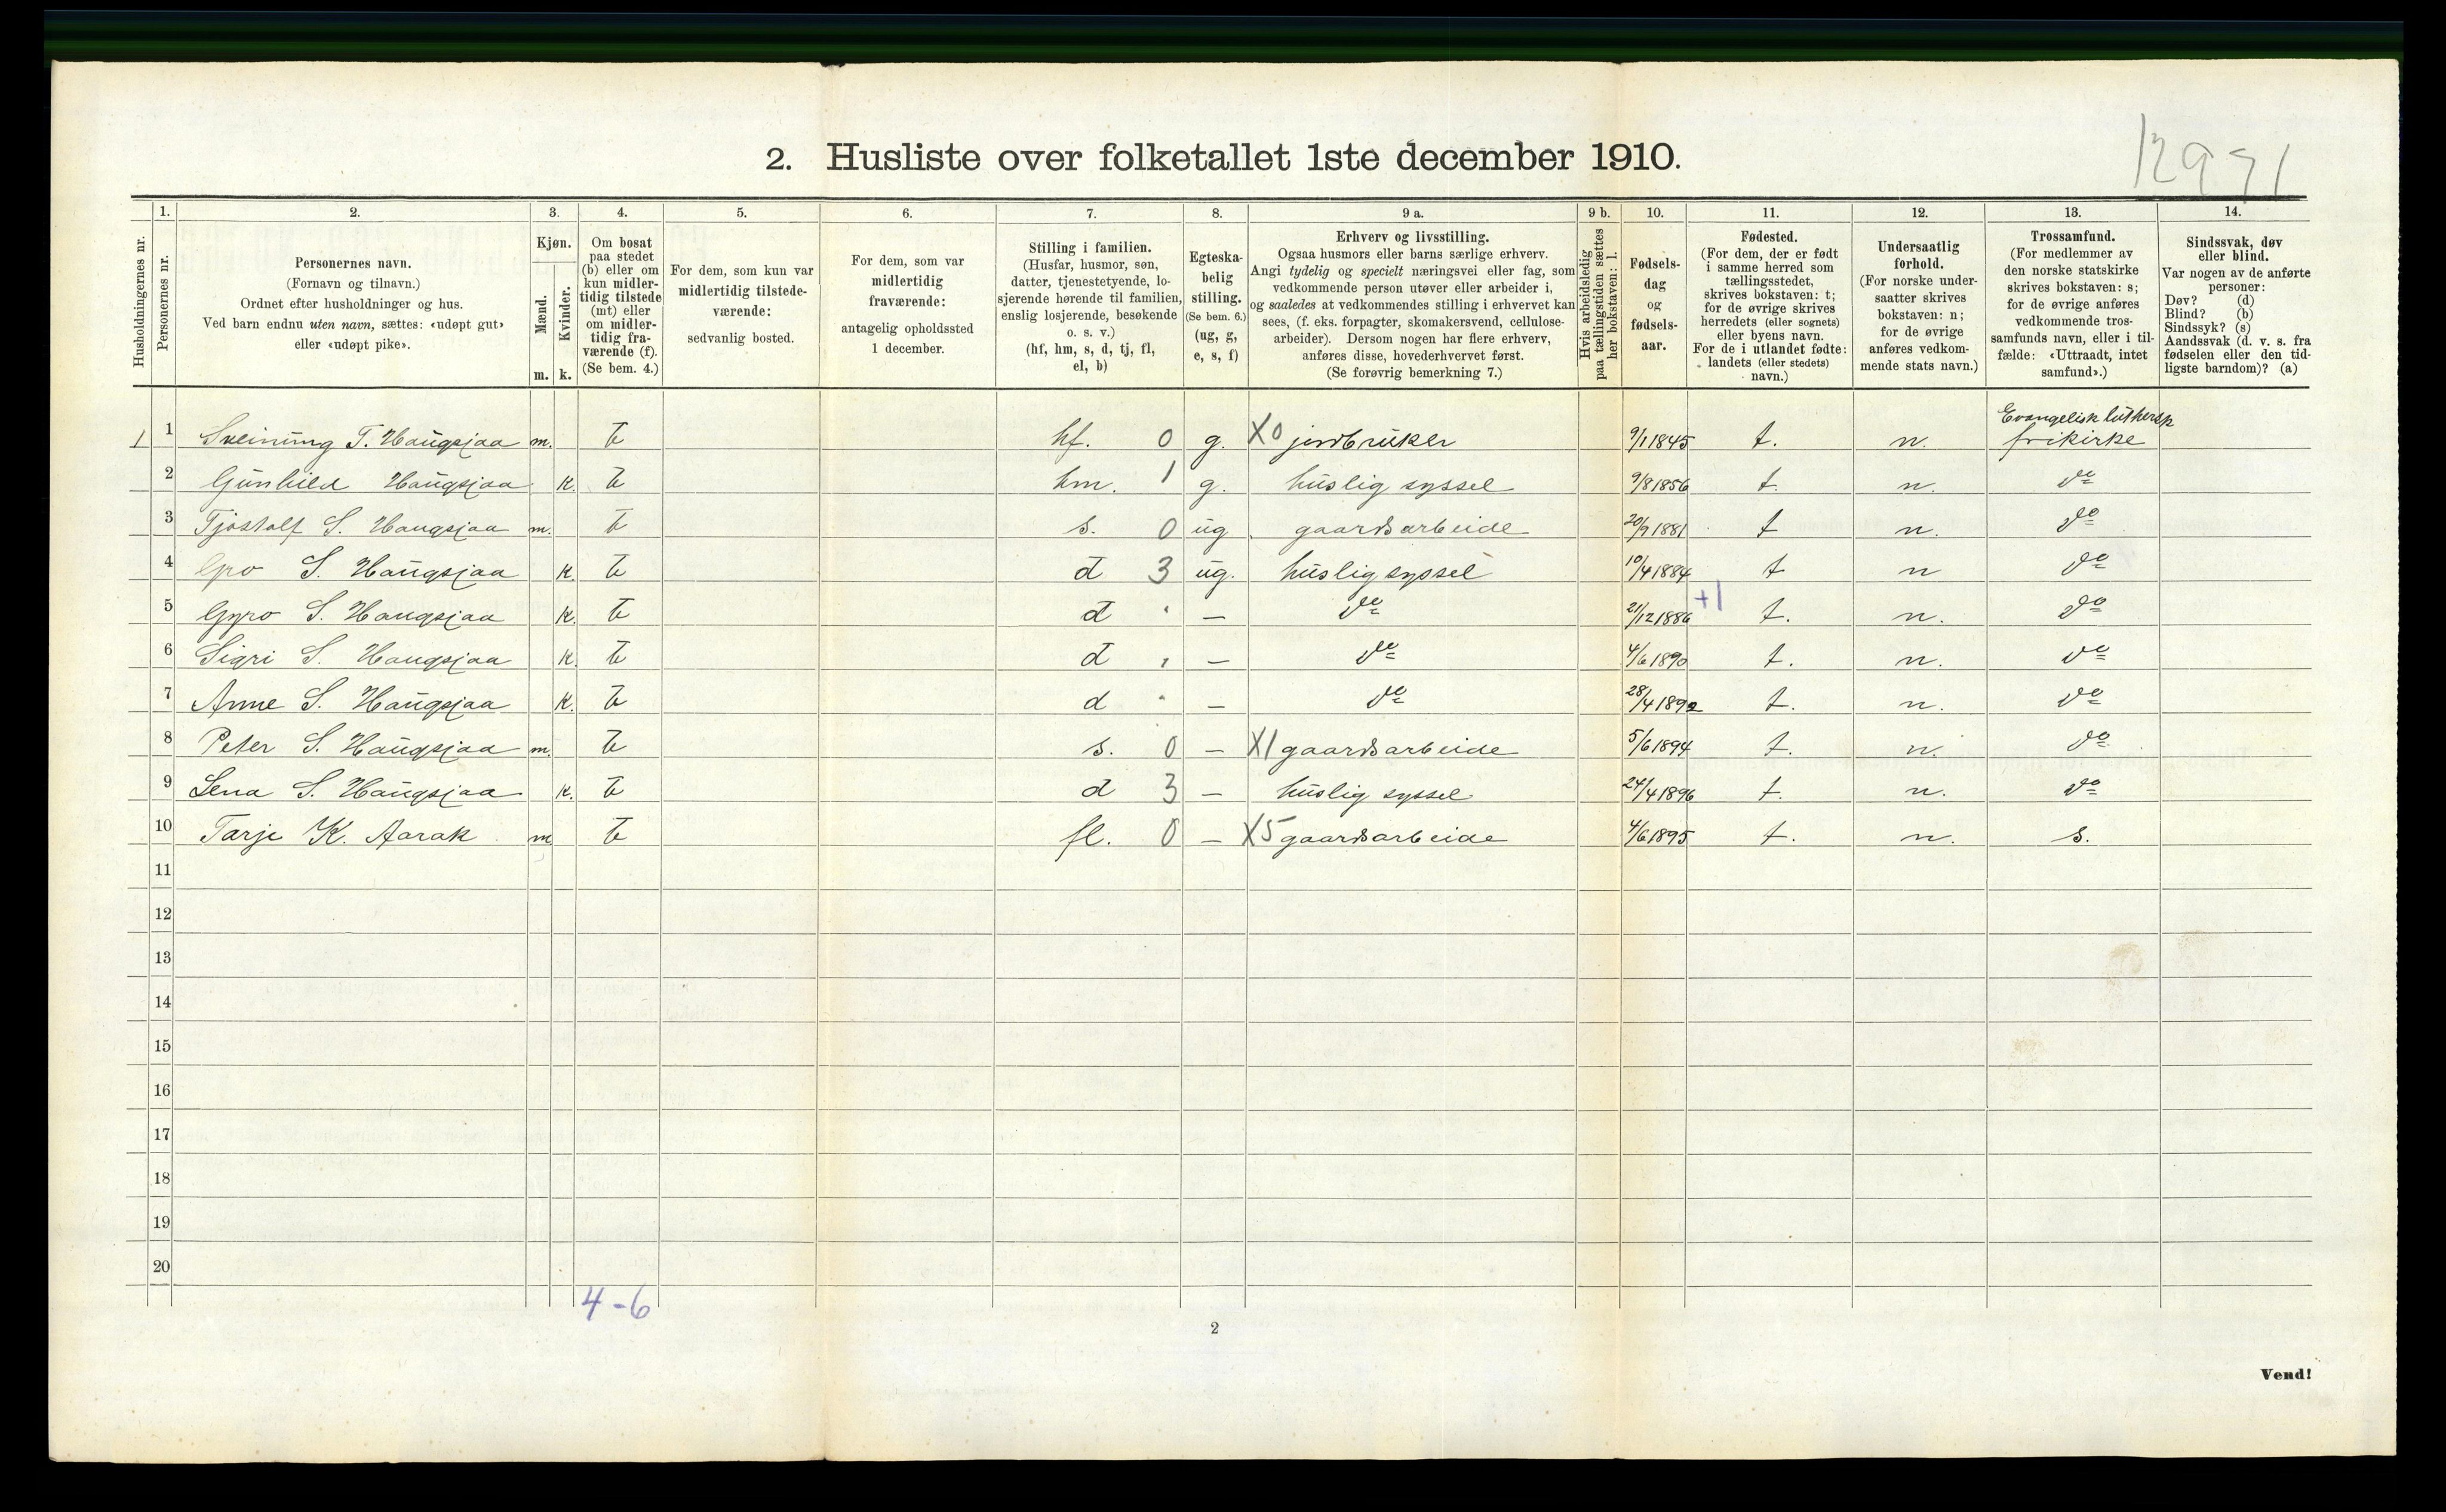 12991
2. Husliste over folketallet 1ste december 1910.
1. 2. 3. 4. 5. 6. 7. 8. 9 a. 9 b. 10. 11. 12. 13. 14.
Husholdningernes nr.
Personernes nr.
Personernes navn.
(Fornavn og tilnavn.)
Ordnet efter husholdninger og hus.
Ved barn endnu uten navn, sættes: «udøpt gut»
eller «udøpt pike».
Kjøn.
Mænd.
Kvinder.
m. k.
Om bosat
paa stedet
(b) eller om
kun midler-
tidig tilstede
(mt) eller
om midler-
tidig fra-
værende (f).
(Se bem. 4.)
For dem, som kun var
midlertidig tilstede-
værende:
sedvanlig bosted.
For dem, som var
midlertidig
fraværende:
antagelig opholdssted
1 december.
Stilling i familien.
(Husfar, husmor, søn,
datter, tjenestetyende, lo-
sjerende hørende til familien,
enslig losjerende, besøkende
o. s. v.)
(hf, hm, s, d, tj, fl,
el, b)
Egteska-
belig
stilling.
(Se bem. 6.)
(ug, g,
e, s, f)
Erhverv og livsstilling.
Ogsaa husmors eller barns særlige erhverv.
Angi tydelig og specielt næringsvei eller fag, som
vedkommende person utøver eller arbeider i,
og saaledes at vedkommendes stilling i erhvervet kan
sees, (f. eks. forpagter, skomakersvend, cellulose-
arbeider). Dersom nogen har flere erhverv,
anføres disse, hovederhvervet først.
(Se forøvrig bemerkning 7.)
Hvis arbeidsledig
paa tællingstiden sættes
her bokstaven: l.
Fødsels-
dag
og
fødsels-
aar.
Fødested.
(For dem, der er født
i samme herred som
tællingsstedet,
skrives bokstaven: t;
for de øvrige skrives
herredets (eller sognets)
eller byens navn.
For de i utlandet fødte:
landets (eller stedets)
navn.)
Undersaatlig
forhold.
(For norske under-
saatter skrives
bokstaven: n;
for de øvrige
anføres vedkom-
mende stats navn.)
Trossamfund.
(For medlemmer av
den norske statskirke
skrives bokstaven: s;
for de øvrige anføres
vedkommende tros-
samfunds navn, eller i til-
fælde: «Uttraadt, intet
samfund».)
Sindssvak, døv
eller blind.
Var nogen av de anførte
personer:
Døv? (d)
Blind? (b)
Sindssyk? (s)
Aandssvak (d. v. s. fra
fødselen eller den tid-
ligste barndom)? (a)
Evangelisk luthersk
1 1 Sveinung T. Haugsjaa m. b hf. 0 g. X0 jordbruker 9/1 1845 t. n. frikirke
2 Gunhild Haugsjaa k. b hm. 1 g. huslig syssel 9/8 1856 t. n. do
3 Tjostolf S. Haugsjaa m. b s. 0 ug gaardsarbeide 20/9 1881 t n. do
4 Gro S. Haugsjaa k. b d 3 ug. huslig syssel 10/4 1884 t n do
5 Gyro S. Haugsjaa k. b d " — do 21/12 1886 +1 t. n. do
6 Sigri S. Haugsjaa k. b d " — do 4/6 1890 t. n. do
7 Anne S. Haugsjaa k. b d " — do 28/4 1892 t. n. do
8 Peter S. Haugsjaa m. b s. 0 — X1 gaardsarbeide 5/6 1894 t. n. do
9 Lena S. Haugsjaa k. b d 3 — huslig syssel 24/4 1896 t. n. do
10 Tarje K. Aarak m b fl. 0 — X5 gaardsarbeide 4/6 1895 t. n. s.
11
12
13
14
15
16
17
18
19
20
4-6
2
Vend!